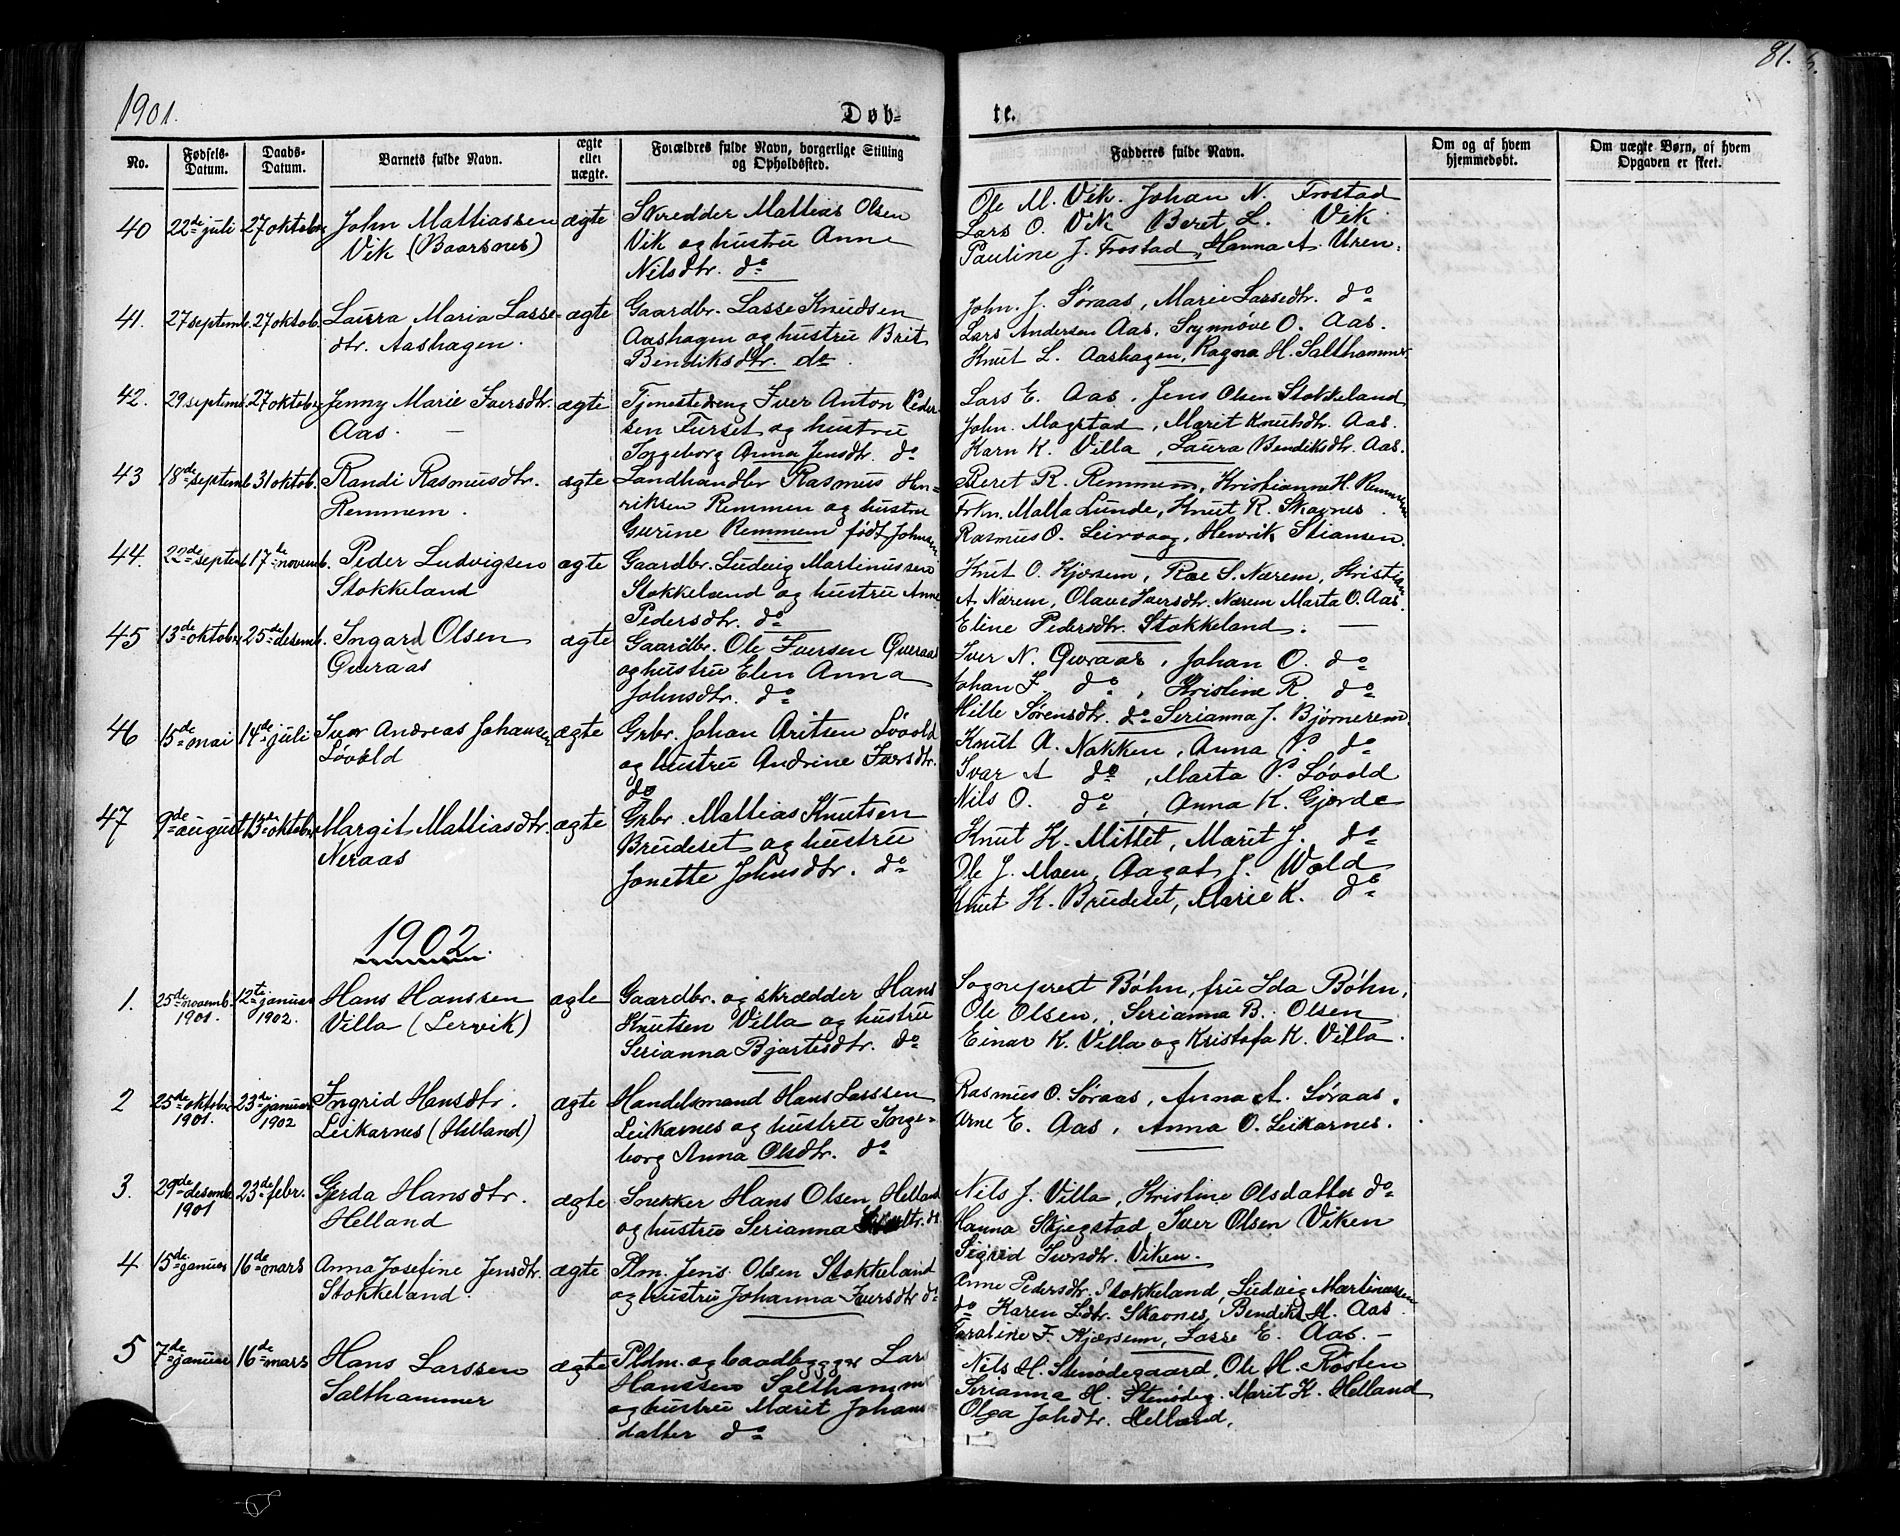 1901.
Døb-
te.
81.
No.
Fødsels-Datum.
Daabs-Datum.
Barnets fulde Navn.
ægte eller uægte.
Forældres fulde Navn, borgerlige Stilling og Opholdssted.
Fadderes fulde Navn.
Om og af hvem hjemmedøbt.
Om uægte Børn, af hvem Opgaven er skeet.
40 22de juli 27 oktobr John Mattiassen ægte
Vik (Baarsnes)
Skredder Mattias Olsen
Vik og hustru Anne
Nilsdtr. do
Ole M. Vik. Johan N. Frostad
Lars O. Vik Beret L. Vik
Pauline J. Frostad, Hanna A. Uren.
41. 27 septemb. 27 oktob. Laura Maria Lasse- ægte
dtr. Aashagen.
Gaardbr. Lasse Knudsen
Aashagen og hustru Brit
Bendiksdtr. do.
John. J. Søraas, Marie Larsedtr. do
Lars Andersen Aas, Synnøve O. Aas.
Knut L. Aashagen, Ragna H. Salthammer
42. 29 septemb. 27 oktob. Jenny Marie Iversdtr. ægte
Aas. —
Tjenestedreng Iver Anton Peder-
sen Furset og hustru
Ingeborg Anna Jensdtr. do
Lars E. Aas, Jens Olsen Stokkeland
John. Magstad, Marit Knutsdtr. Aas.
Karn K. Villa, Laura Bendiksdtr. Aas.
43 18de septemb 31 oktob. Randi Rasmusdtr. ægte
Remmem.
Landhandler Rasmus Hen-
riksen Remmen og hustru
Gurine Remmem født Johnsen
Beret R. Remmem, Kristianne H. Remmem
Frkn. Malla Lunde, Knut R. Skavnes.
Rasmus O. Leirvaag, Henrik Stiansen.
44. 22de septemb 17de novemb. Peder Ludvigsen ægte
Stokkeland
Gaardbr. Ludvig Martinussen
Stokkeland og hustru Anne
Pedersdtr. do
Knut O. Kjørsem, Roe S. Nærem, Kristian
A. Nærem, Olave Iversdtr. Nærem Marta O. Aas.
Eline Pedersdtr. Stokkeland. —
45 13de oktobr 25de desemb. Ingard Olsen ægte
Qveraas
Gaardbr. Ole Iversen Qveraas
og hustru Elen Anna
Johnsdtr. do
Iver N. Qveraas, Johan O. do
Johan I. do, Kristine R. do
Hille Sørensdtr. do Serianna J. Bjørnerem
46 15de mai 14de juli Ivar Andreas Johansen ægte
Løvold
Grbr. Johan Aritsen Løvold
og hustru Andrine Iversdtr.
do
Knut A. Nakken, Anna P. do
Ivar A do, Marta P. Løvold
Nils O. do, Anna K. Gjerde
47 9de august 13de oktobr Margit Mattiasdtr. ægte
Neraas
Grbr. Mattias Knutsen
Brudeset og hustru
Jonette Johnsdtr. do
Knut K. Mittet, Marit J. do
Ole J. Moen, Aagot J. Wold
Knut K. Brudeset, Marie K. do
1902.
1. 25de novemb. 1901. 12te januar 1902. Hans Hanssen ægte
Villa (Lervik)
Gaardbr. og skrædder Hans
Knutsen Villa og hustru
Serianna Bjartesdtr. do
Sogneprest Bøhn, fru Ida Bøhn,
Ole Olsen, Serianna B. Olsen
Einar K. Villa og Kristofa K. Villa.
2 25de oktobr 1901. 23de januar 1902 Ingrid Hansdtr. ægte
Leikarnes (Helland)
Handelsmand Hans Larssen
Leikarnes og hustru Inge-
borg Anna Olsdtr. do
Rasmus O. Søraas, Anna A. Søraas.
Arne E. Aas, Anna O. Leikarnes.
3. 29de desemb. 1901 23de febr. Gerda Hansdtr. ægte
Helland
Snekker Hans Olsen Helland
og hustru Serianna
Nils J. Villa, Kristine Olsdatter do
Hanna Skjegstad, Iver Olsen Viken
Sigrid Iversdtr. Viken.
4 15de januar 16de mars Anna Josefine Jensdtr. ægte
Stokkeland.
Plm. Jens Olsen Stokkeland
og hustru Johanna Iversdtr do
Anne Pedersdtr. Stokkeland, Ludvig Martinussen
do Karen Ldtr. Skavnes, Bendikt H. Aas
Karoline F. Kjørsem, Lasse E. Aas. —
5 7de januar 16de mars Hans Larssen ægte
Salthammer
Pldm. og baadbygger Lars
Hanssen Salthammer
og hustru Marit Johans
datter do
Nils H. Stenødegaard, Ole H. Røsten
Serianna H. Stenødeg. Marit K. Helland
Olga Johdtr. Helland.